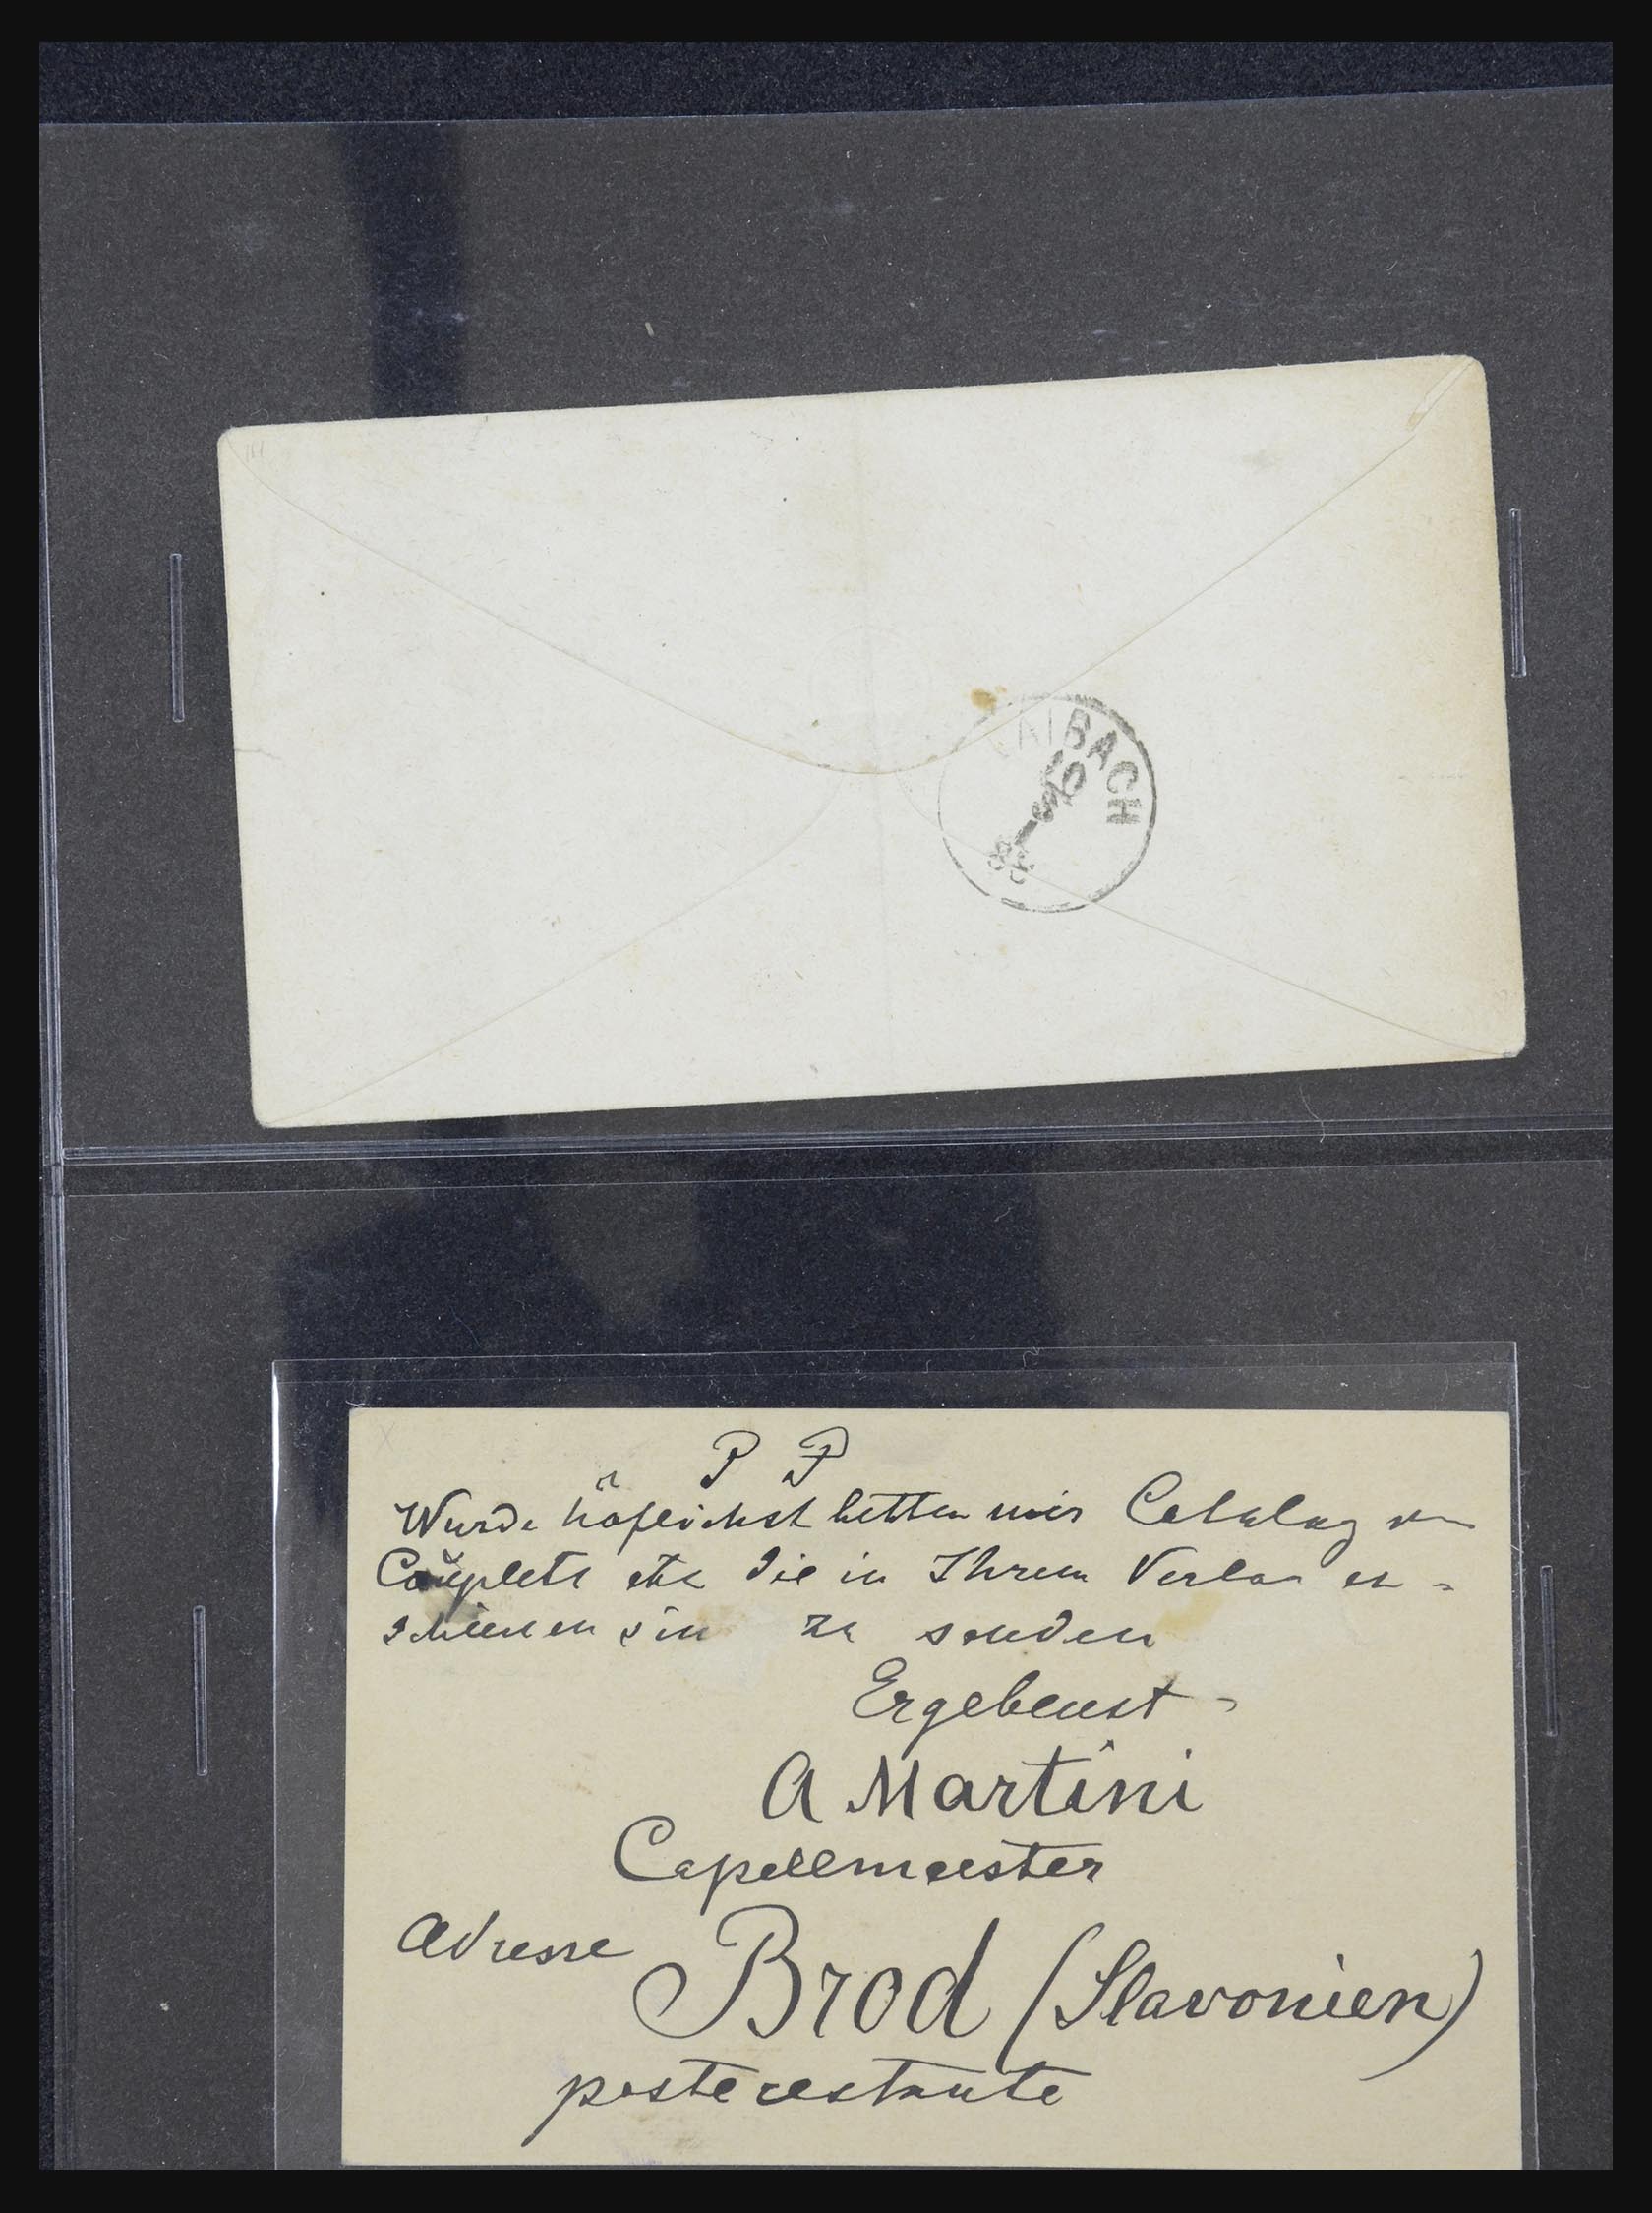 AIBACH
P P
Wurde höflichst bitten mir Catalog
Couplets etc die in Ihrem Verlag er-
schienen sin zu senden
Ergebenst
A Martini
Capellmeister
Adresse Brod (Slavonien)
poste restante